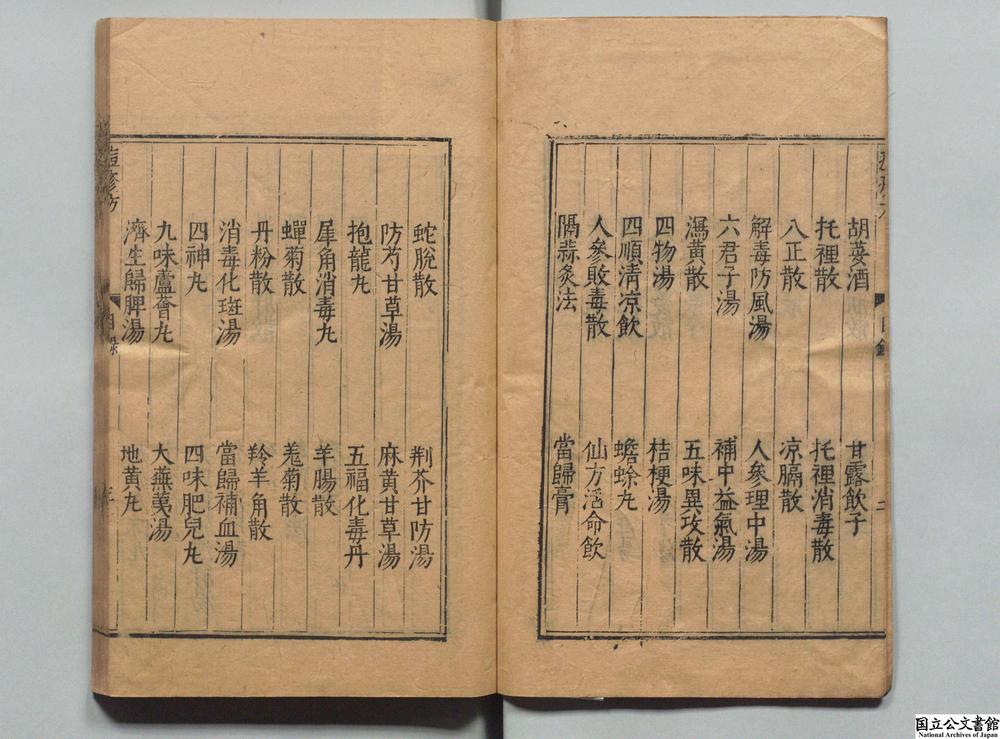 胡荽酒　甘露飲子
托裡散　托裡消毒散
八正散　凉膈散
解毒防風湯　人參理中湯
六君子湯　補中益氣湯
瀉黃散　五味異攻散
四物湯　桔梗湯
四順清凉飲　蟾蜍丸
人參敗毒散　仙方活命飲
隔蒜灸法　當歸膏
目錄
蛇脫散　荆芥甘防湯
防芍甘草湯　麻黃甘草湯
抱龍丸　五福化毒丹
犀角消毒丸　羊腸散
蟬菊散　羗菊散
丹粉散　羚羊角散
消毒化斑湯　當歸補血湯
四神丸　四味肥兒丸
九味蘆薈丸　大蕪荑湯
濟生歸脾湯　地黃丸
痘疹方
目錄
国立公文書館
National Archives of Japan